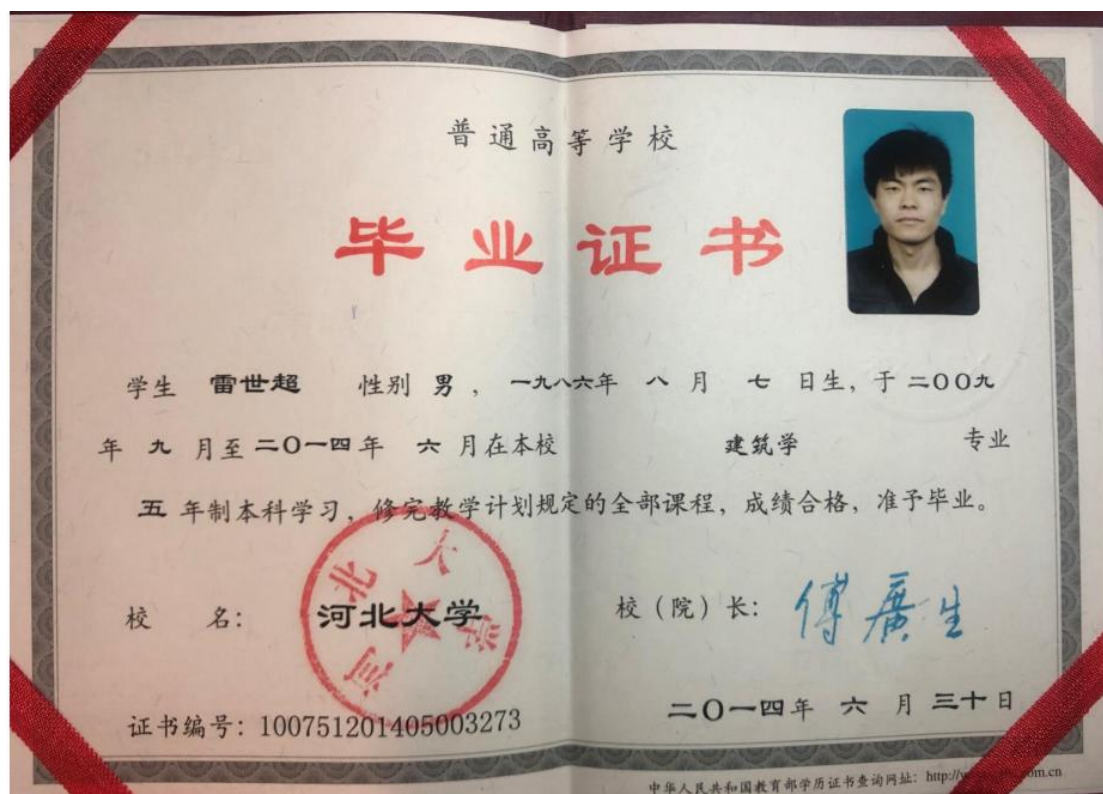 普通高等学校
毕业证书
学生 雷世超 性别 男 ，一九八六年 八 月 七 日生，于 二〇〇九
年 九 月至 二〇一四年 六 月在本校 建筑学 专业
五 年制本科学习，修完教学计划规定的全部课程，成绩合格，准予毕业。
校 名： 河北大学 校（院）长： 傅廣生
河北大学
证书编号：100751201405003273 二〇一四年 六 月 三十日
中华人民共和国教育部学历证书查询网址：http://